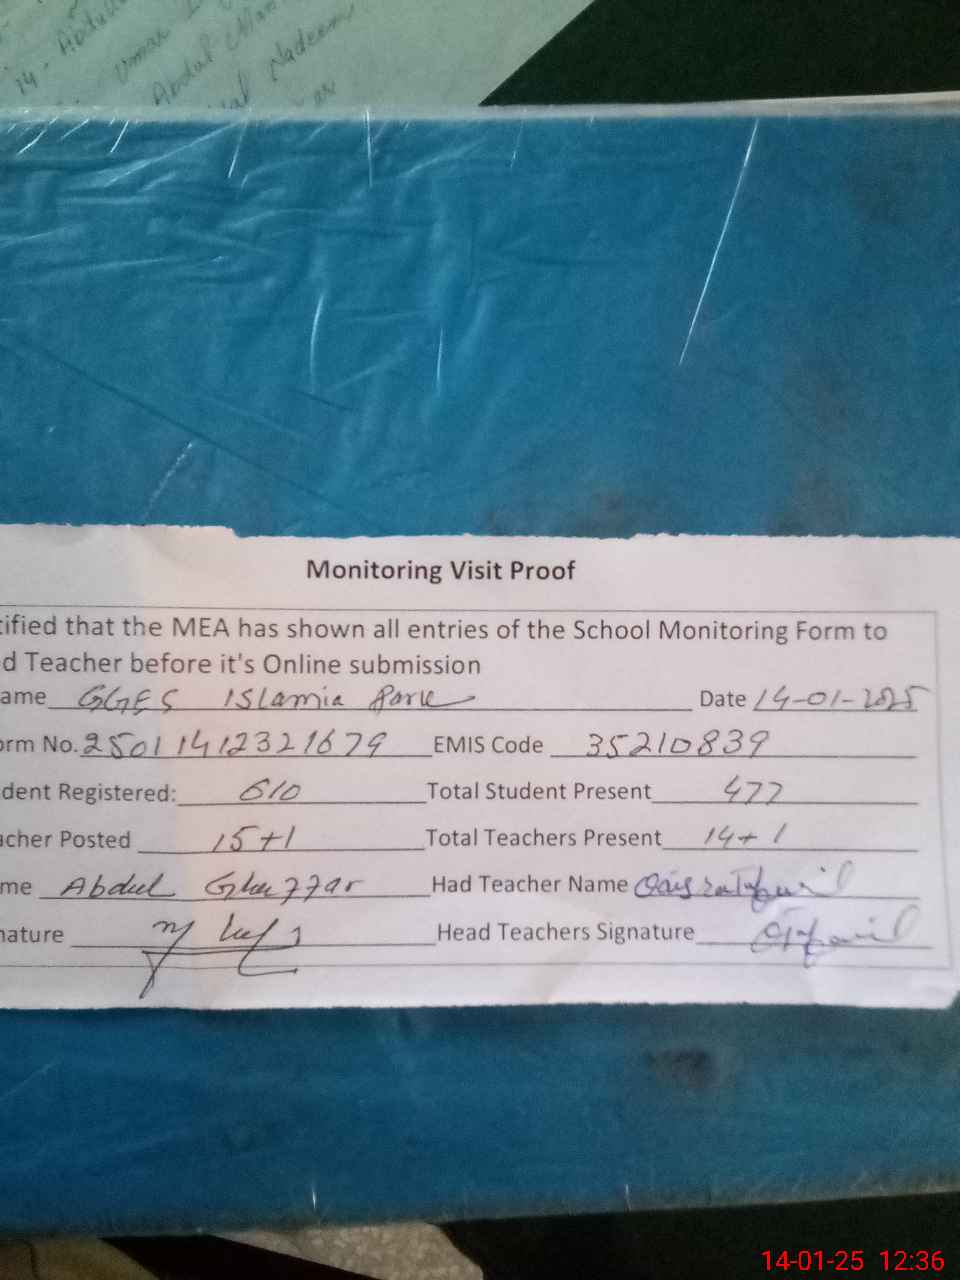 14- Abdull
Umar
Abdul
Nadeem
Monitoring Visit Proof
tified that the MEA has shown all entries of the School Monitoring Form to
d Teacher before it's Online submission
ame GGES ISlamia Park Date 14-01-2025
orm No. 25011412321679 EMIS Code 35210839
dent Registered: 610 Total Student Present 477
acher Posted 15+1 Total Teachers Present 14+1
me Abdul Ghaffar Had Teacher Name
nature Head Teachers Signature
14-01-25 12:36